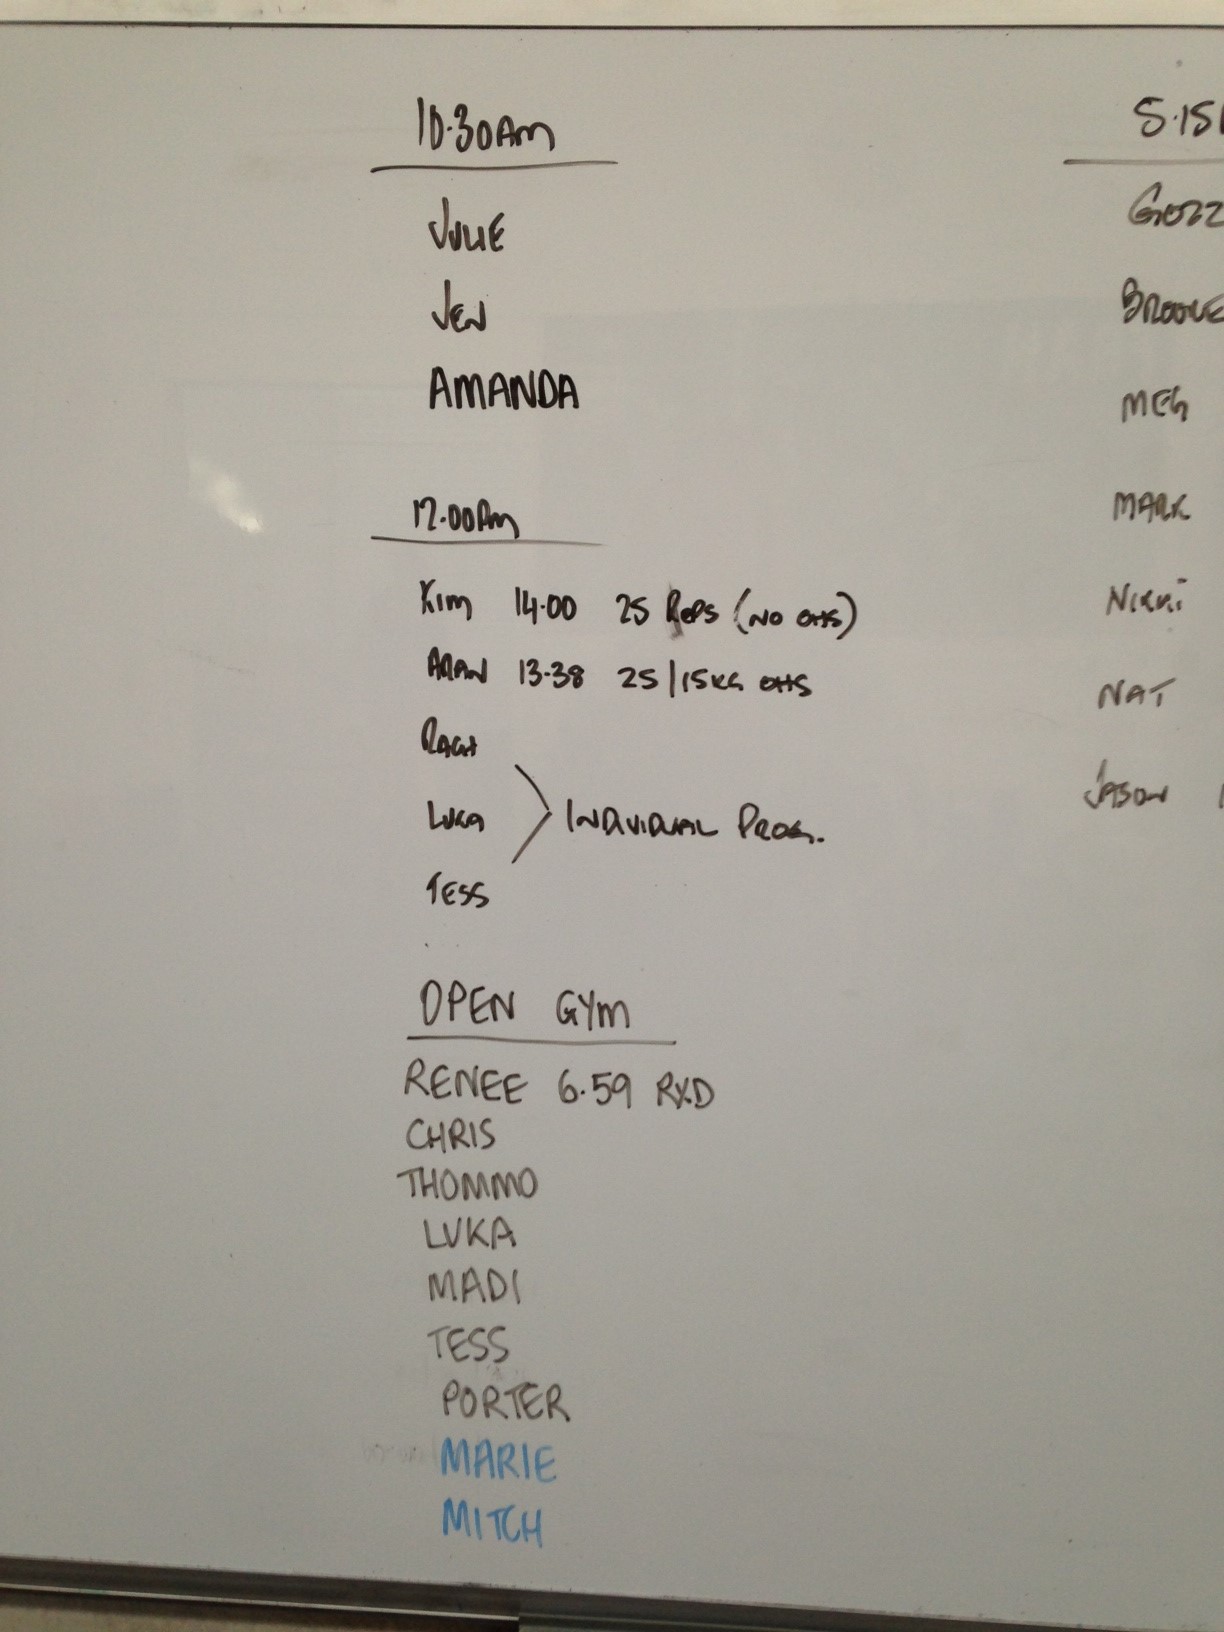 10.30AM
JULIE
JEN
AMANDA
12.00PM
KIM 14.00 25 REPS (NO OHS)
ARAN 13.38 25/15KG OHS
RACH
LUKA
INDIVIDUAL PROG.
TESS
OPEN GYM
RENEE 6.59 RXD
CHRIS
THOMMO
LUKA
MADI
TESS
PORTER
MARIE
MITCH
5.15
BROOKE
MEG
MARK
NIKKI
NAT
JASON